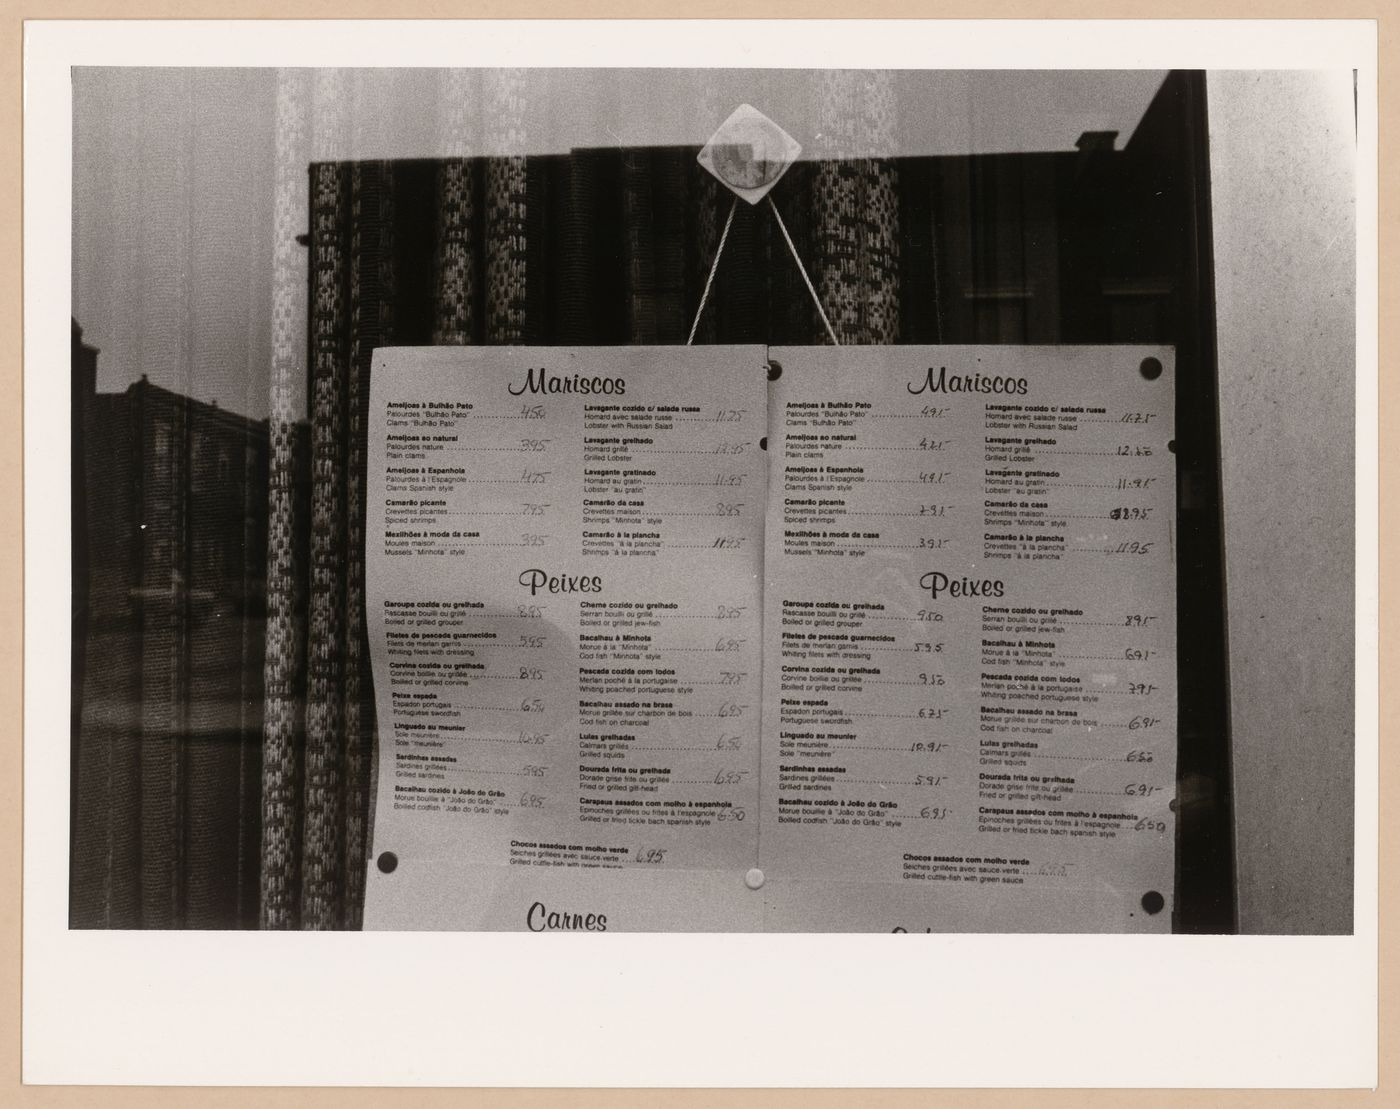 Mariscos
Ameijoas à Bulhão Pato
Palourdes "Bulhão Pato" 450
Clams "Bulhão Pato"
Ameijoas ao natural
Palourdes nature 395
Plain clams
Ameijoas à Espanhola
Palourdes à l'Espagnole 475
Clams Spanish style
Camarão picante
Crevettes picantes 795
Spiced shrimps
Mexilhões à moda da casa
Moules maison 395
Mussels "Minhota" style
Lavagante cozido c/ salada russa
Homard avec salade russe 11.75
Lobster with Russian Salad
Lavagante grelhado
Homard grillé 12.95
Grilled Lobster
Lavagante gratinado
Homard au gratin 11.95
Lobster "au gratin"
Camarão da casa
Crevettes maison 895
Shrimps "Minhota" style
Camarão à la plancha
Crevettes "à la plancha" 11.95
Shrimps "à la plancha"
Peixes
Garoupa cozida ou grelhada
Rascasse bouilli ou grillé 895
Boiled or grilled grouper
Filetes de pescada guarnecidos
Filets de merlan garnis 595
Whiting filets with dressing
Corvina cozida ou grelhada
Corvine bollie ou grillée 895
Boiled or grilled corvine
Peixe espada
Espadon portugais 650
Portuguese swordfish
Linguado au meunier
Sole meunière 10.95
Sole "meunière"
Sardinhas assadas
Sardines grillées 595
Grilled sardines
Bacalhau cozido à João do Grão
Morue bouillie à "João do Grão" 695
Boiled codfish "João do Grão" style
Cherne cozido ou grelhado
Serran bouilli ou grillé 895
Boiled or grilled jew-fish
Bacalhau à Minhota
Morue à la "Minhota" 695
Cod fish "Minhota" style
Pescada cozida com todos
Merlan poché à la portugaise 795
Whiting poached portuguese style
Bacalhau assado na brasa
Morue grillée sur charbon de bois 695
Cod fish on charcoal
Lulas grelhadas
Calmars grillés 650
Grilled squids
Dourada frita ou grelhada
Dorade grise frite ou grillée 695
Fried or grilled gilt-head
Carapaus assados com molho à espanhola
Epinoches grillées ou frites à l'espagnole 650
Grilled or fried tickle bach spanish style
Chocos assados com molho verde
Seiches grillées avec sauce verte 695
Grilled cuttle-fish with green sauce
Carnes
Mariscos
Ameijoas à Bulhão Pato
Palourdes "Bulhão Pato" 495
Clams "Bulhão Pato"
Ameijoas ao natural
Palourdes nature 425
Plain clams
Ameijoas à Espanhola
Palourdes à l'Espagnole 495
Clams Spanish style
Camarão picante
Crevettes picantes 795
Spiced shrimps
Mexilhões à moda da casa
Moules maison 395
Mussels "Minhota" style
Lavagante cozido c/ salada russa
Homard avec salade russe 11.75
Lobster with Russian Salad
Lavagante grelhado
Homard grillé
Grilled Lobster
Lavagante gratinado
Homard au gratin 11.95
Lobster "au gratin"
Camarão da casa
Crevettes maison
Shrimps "Minhota" style
Camarão à la plancha
Crevettes "à la plancha" 11.95
Shrimps "à la plancha"
Peixes
Garoupa cozida ou grelhada
Rascasse bouilli ou grillé 9.50
Boiled or grilled grouper
Filetes de pescada guarnecidos
Filets de merlan garnis 595
Whiting filets with dressing
Corvina cozida ou grelhada
Corvine bollie ou grillée 950
Boiled or grilled corvine
Peixe espada
Espadon portugais 6.75
Portuguese swordfish
Linguado au meunier
Sole meunière 10.95
Sole "meunière"
Sardinhas assadas
Sardines grillées 595
Grilled sardines
Bacalhau cozido à João do Grão
Morue bouillie à "João do Grão" 695
Boiled codfish "João do Grão" style
Cherne cozido ou grelhado
Serran bouilli ou grillé 895
Boiled or grilled jew-fish
Bacalhau à Minhota
Morue à la "Minhota" 695
Cod fish "Minhota" style
Pescada cozida com todos
Merlan poché à la portugaise 795
Whiting poached portuguese style
Bacalhau assado na brasa
Morue grillée sur charbon de bois 695
Cod fish on charcoal
Lulas grelhadas
Calmars grillés 650
Grilled squids
Dourada frita ou grelhada
Dorade grise frite ou grillée 695
Fried or grilled gilt-head
Carapaus assados com molho à espanhola
Epinoches grillées ou frites à l'espagnole 650
Grilled or fried tickle bach spanish style
Chocos assados com molho verde
Seiches grillées avec sauce verte
Grilled cuttle-fish with green sauce